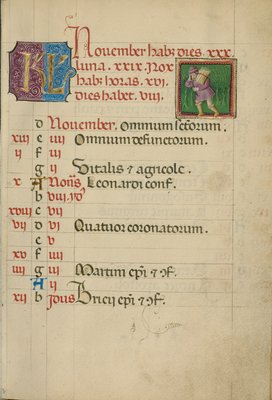 KL November hab; dies. xxx.
Luna. xxix. Nox
hab; horas. xvi.
dies habet. viii.
d November. Omnium sctorum.
xiii e iiii Omnium defunctorum.
ii f iii
g ii Vitalis & agricole.
x A Noñs Leonardi conf.
b viii id
xviii c vii
vii d vi Quatuor coronatorum.
e v
xv f iiii
iiii g iii Martini epi & cf.
A ii
xii b Idus Bricij epi & cf.